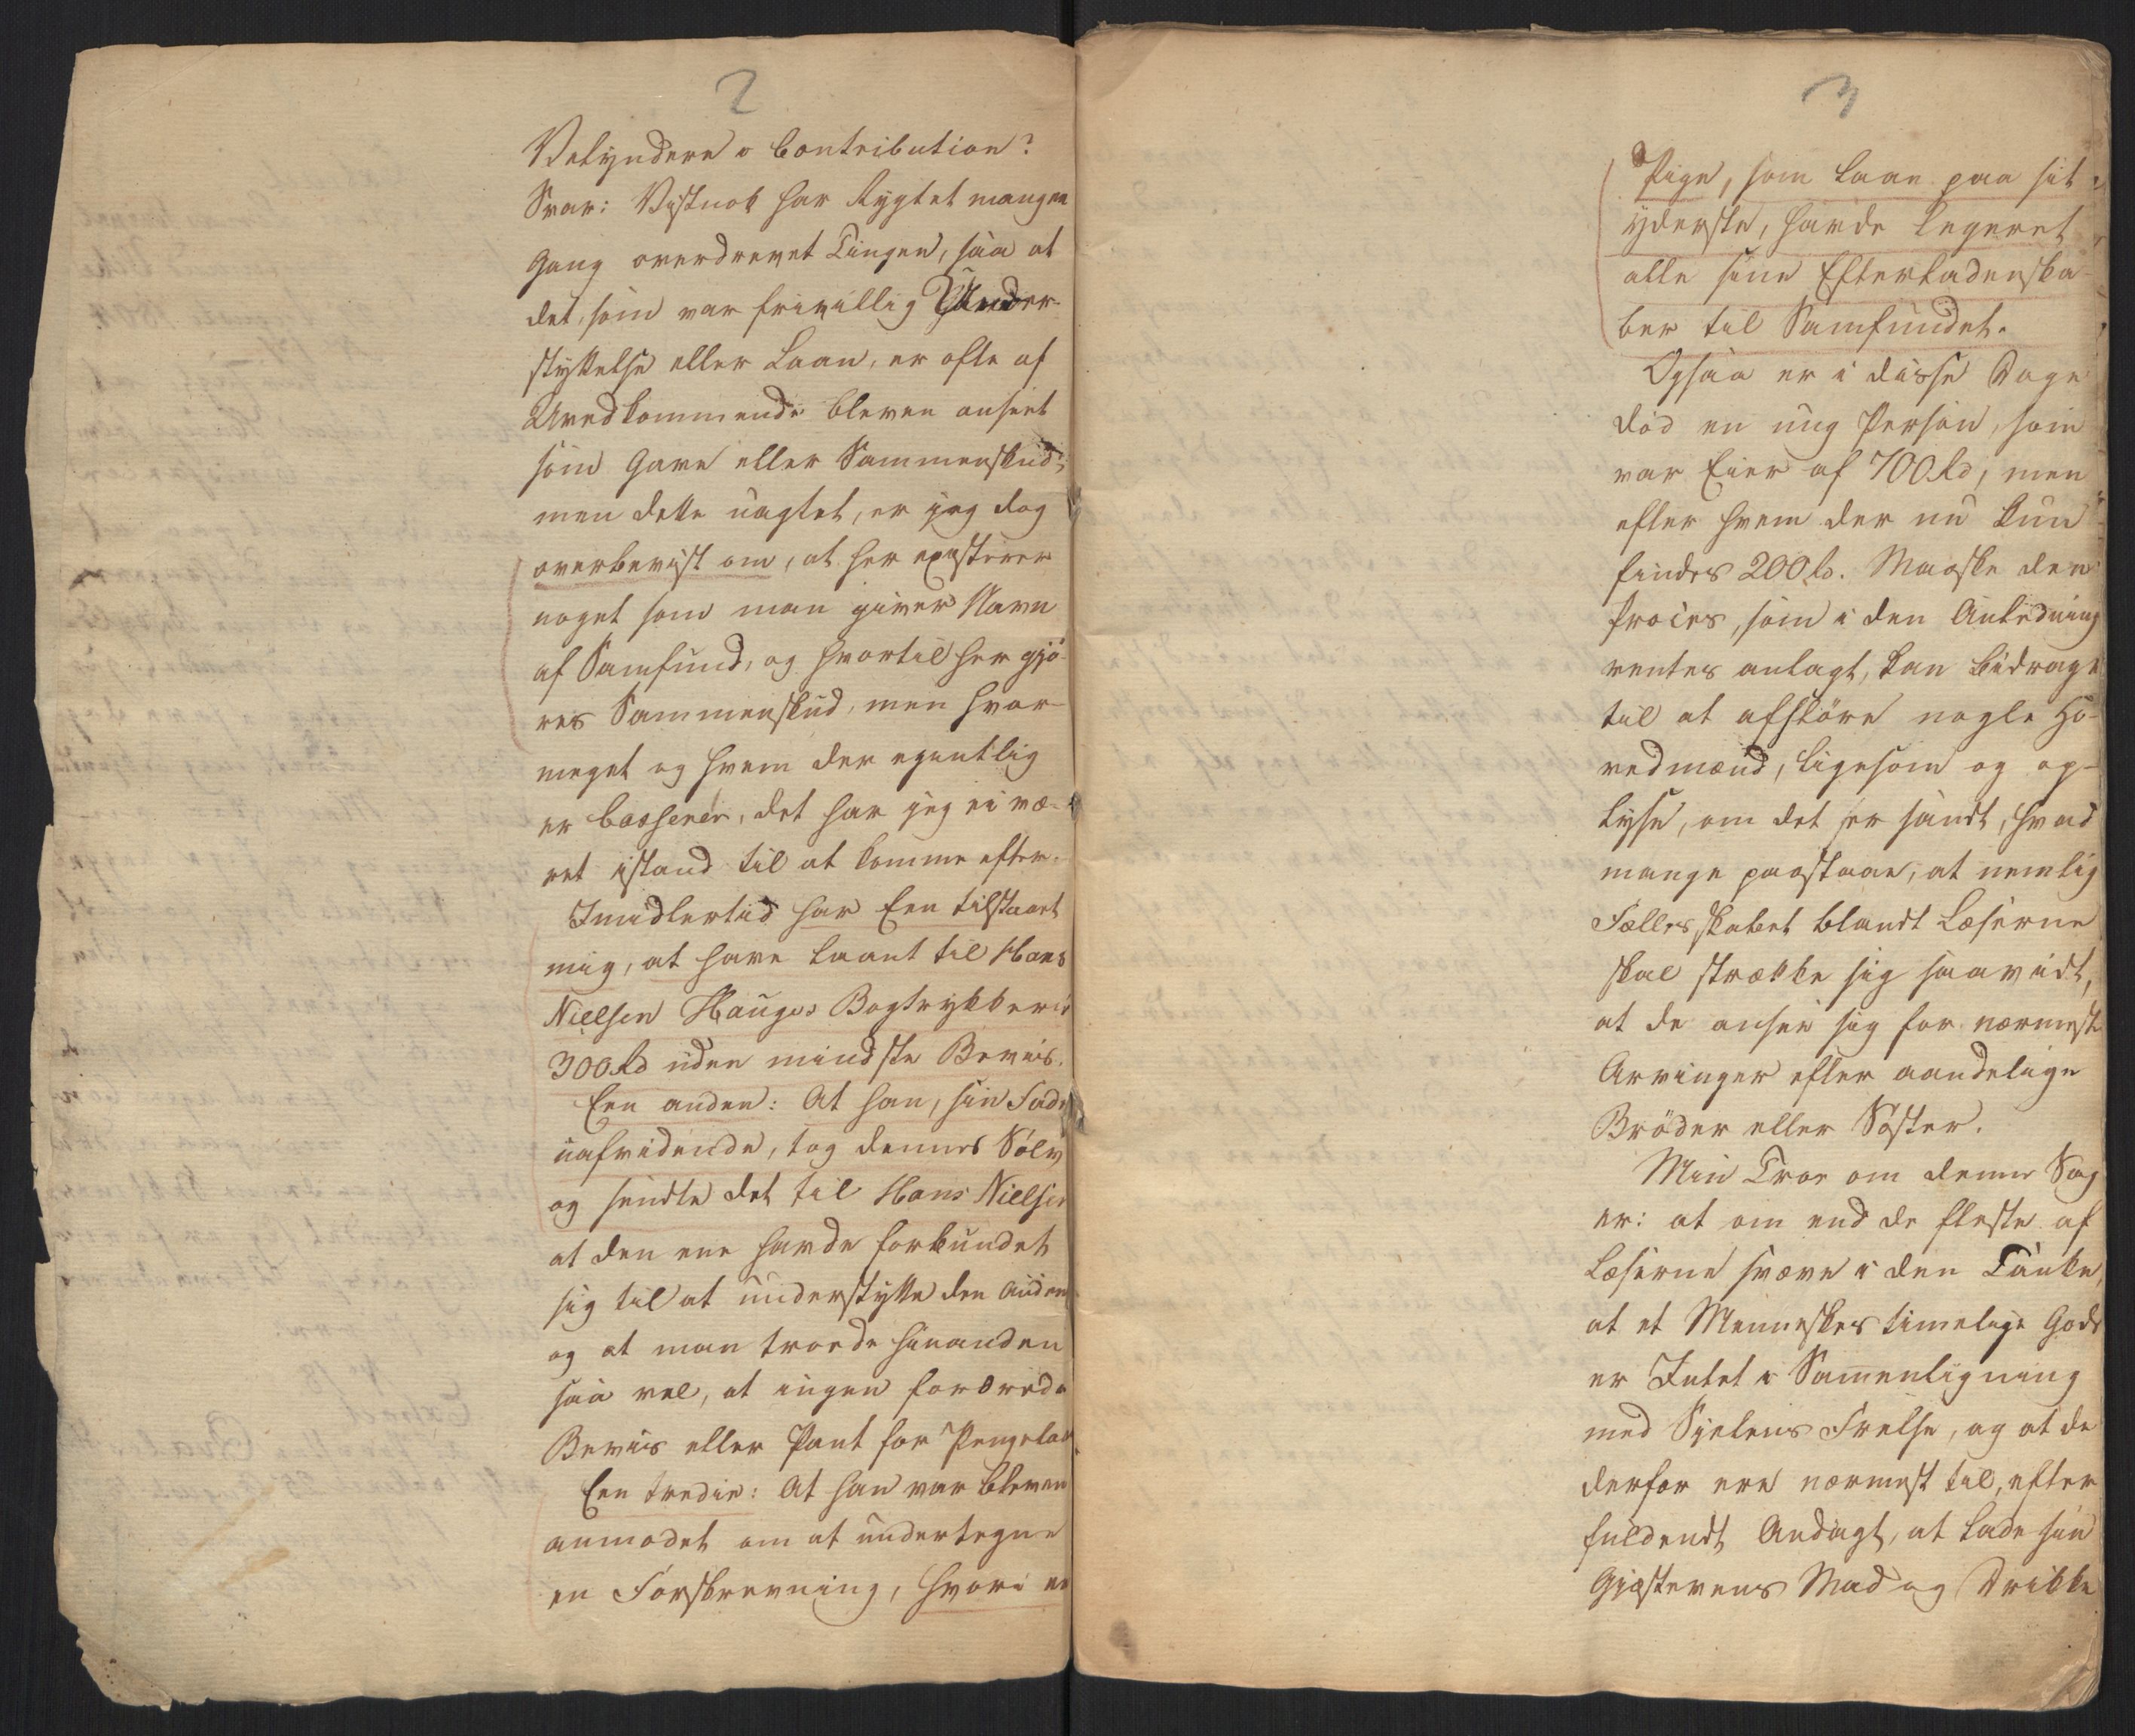 2
Velyndere o Contribution?
Svar: Vistnok har Rygtet mangen
Gang overdrevet Tingen, saa at
det, som var frivillig Under-
støttelse eller Laan, er ofte af
Uvedkommende bleven anseet
som Gave eller Sammenskud;
men dette uagtet, er jeg dog
overbevist om, at her existerer
noget som man giver Navn
af Samfund, og hvortil her gjø-
res Sammenskud, men hvor-
meget og hvem der egentlig
er Casserer, det har jeg ei væ-
ret istand til at komme efter.
Imidlertid har Een tilstaaet
mig, at have laant til Hans
Nielsen Hauges Bogtrykkerie
300 Rd uden mindste Beviis.
Een anden: At han, sin Fader
uafvidende, tog dennes Sølv
og sendte det til Hans Nielsen
at den ene havde forbundet
sig til at understøtte den anden
og at man troede hinanden
saa vel, at ingen fordrede
Beviis eller Pant for Pengelaan.
Een tredie: At han var bleven
anmodet om at undertegne
en Forskrevning, hvori en
3
Pige, som laae paa sit
yderste, havde legeret
alle sine Efterladenska-
ber til Samfundet.
Ogsaa er i disse Dage
død en ung Person, som
var Eier af 700 Rd, men
efter hvem der nu kun
findes 200 Rd. Maaske den
Proces, som i den Anledning
ventes anlagt, kan bidrage
til at afsløre nogle Ho-
vedmænd, ligesom og op-
lyse, om det er sandt, hvad
mange paastaae, at nemlig
Fællesskabet blandt Læserne
skal strække sig saavidt,
at de ansee sig for nærmeste
Arvinger efter aandelige
Brödre eller Söster.
Min Troe om denne Sag
er: at om end de fleste af
Læserne svæve i den Tanke,
at et Menneskes timelige Gods
er Intet i Sammenligning
med Sjelens Frelse, og at de
derfor ere nærmest til, efter
fuldendt Andagt, at lade sin
Gjæstevens Mad og Drikke